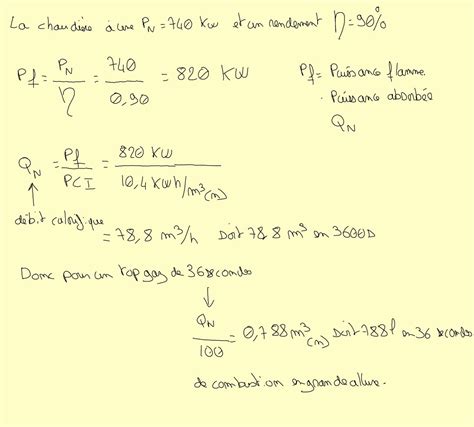 La chaudière à une PN = 740 KW et un rendement η = 90%
Pf = PN / η = 740 / 0,90 = 820 KW
Pf = Puissance flamme.
. Puissance absorbée
QN
QN = Pf / PCI = 820 KW / 10,4 KWh/m³(n)
↑
débit calorifique
= 78,8 m³/h Soit 78,8 m³ en 3600s
Donc pour un top gaz de 36 secondes
↓
QN / 100 = 0,788 m³(n) Soit 788 l en 36 secondes
de combustion en grande allure.